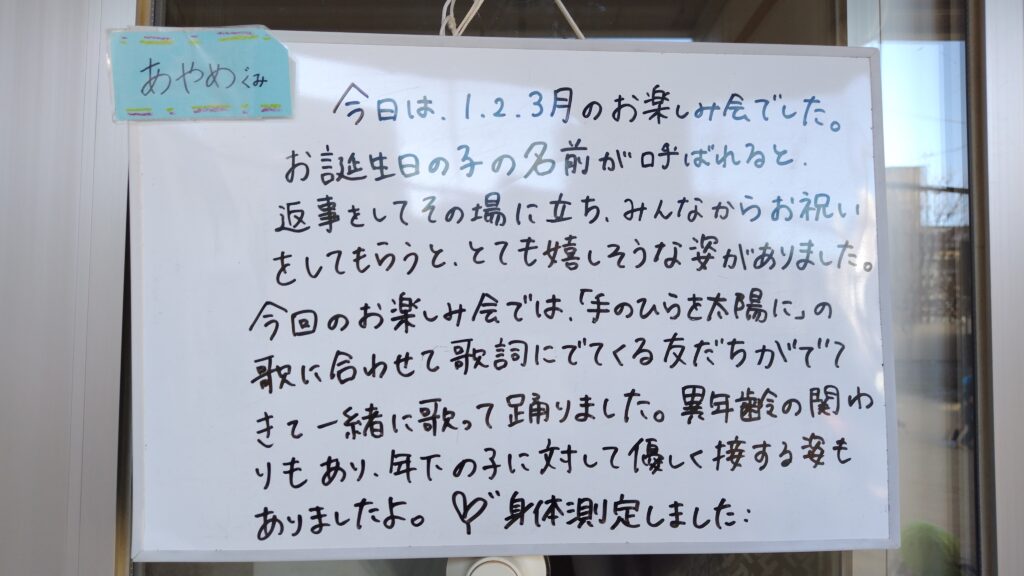 あやめぐみ
今日は、1.2.3月のお楽しみ会でした。
お誕生日の子の名前が呼ばれると、
返事をしてその場に立ち、みんなからお祝い
をしてもらうと、とても嬉しそうな姿がありました。
今回のお楽しみ会では、「手のひらを太陽に」の
歌に合わせて歌詞にでてくる友だちがでて
きて一緒に歌って踊りました。異年齢の関わ
りもあり、年下の子に対して優しく接する姿も
ありましたよ。♡〃身体測定しました: